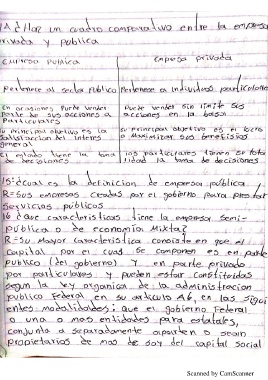 1A ¿Haz un cuadro comparativo entre la empresa
privada y publica
Empresa Publica Empresa privada
Pertenece al sector Publico Pertenece a individuos particulares
En ocasiones Puede vender Puede vender sin limite sus
Parte de sus acciones a acciones en la bolsa
Particulares
Su principal objetivo es la Su principal objetivo es el lucro
Satisfaccion del interes o Maximizar sus beneficios
general
El estado tiene la toma los particulares tienen su tota
de decisiones lidad la toma de decisiones
15 ¿cual es la definicion de empresa publica/
R= Sus empresas creadas por el gobierno para prestar
Servicios publicos
16 ¿que caracteristicas tiene la empresa Semi-
Publica o de economia Mixta?
R= Su Mayor caracteristica consiste en que el
capital por el cual se componen es en parte
publico (del gobierno) y en parte privado
por particulares y pueden estar constituidas
segun la ley organica de la administracion
publico Federal en su articulo A6, en las sigui
entes modalidades: que el gobierno Federal
o una o mas entidades para estatales,
conjunto a separadamente aparten o sean
propietarios de mas de soy del capital social
Scanned by CamScanner